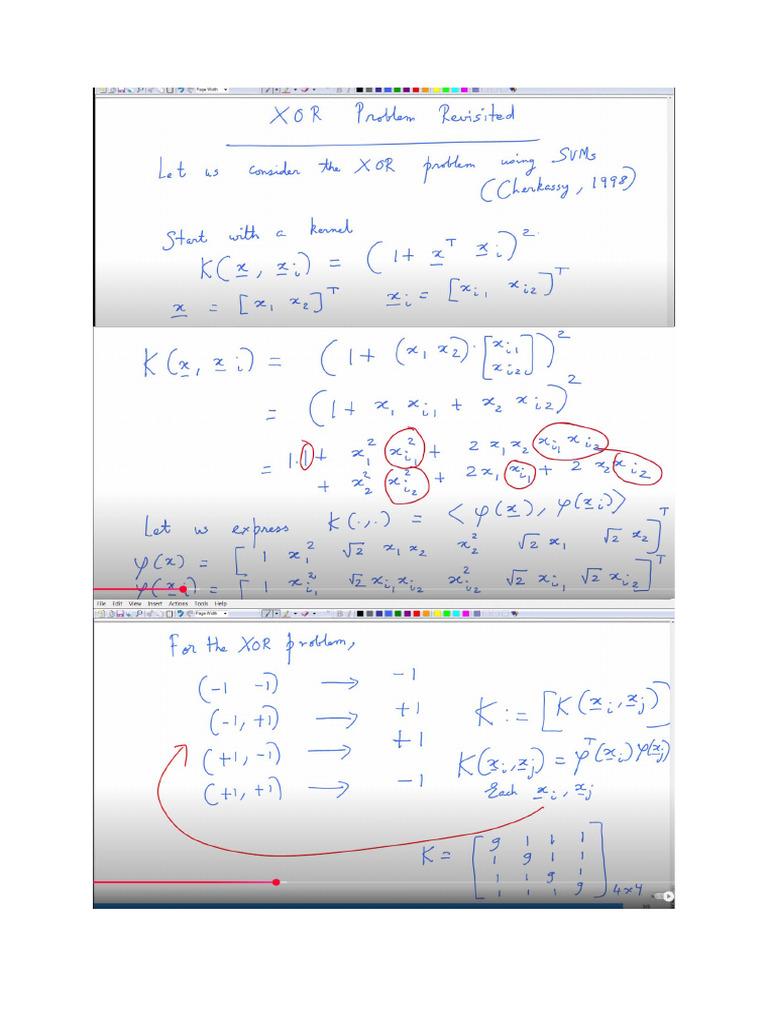 Page Width
XOR Problem Revisited
Let us consider the XOR problem using SVMs
(Cherkassy, 1998)
Start with a kernel
K(x, xi) = (1 + x^T xi)^2.
x = [x1 x2]^T xi = [xi1 xi2]^T
K(x, xi) = (1 + (x1 x2)·[xi1 xi2])^2
= (1 + x1 xi1 + x2 xi2)^2
= 1·1 + x1^2 xi1^2 + 2 x1 x2 xi1 xi2
+ x2^2 xi2^2 + 2x1 xi1 + 2 x2 xi2
Let us express K(·,·) = <φ(x), φ(xi)>
φ(x) = [1 x1^2 √2 x1 x2 x2^2 √2 x1 √2 x2]^T
φ(xi) = [1 xi1^2 √2 xi1 xi2 xi2^2 √2 xi1 √2 xi2]^T
File Edit View Insert Actions Tools Help
Page Width
For the XOR problem,
(-1 -1) → -1
(-1, +1) → +1
(+1, -1) → +1
(+1, +1) → -1
K := [K(xi, xj)]
K(xi, xj) = φ^T(xi) φ(xj)
Each xi, xj
K = [9 1 1 1
1 9 1 1
1 1 9 1
1 1 1 9] 4x4